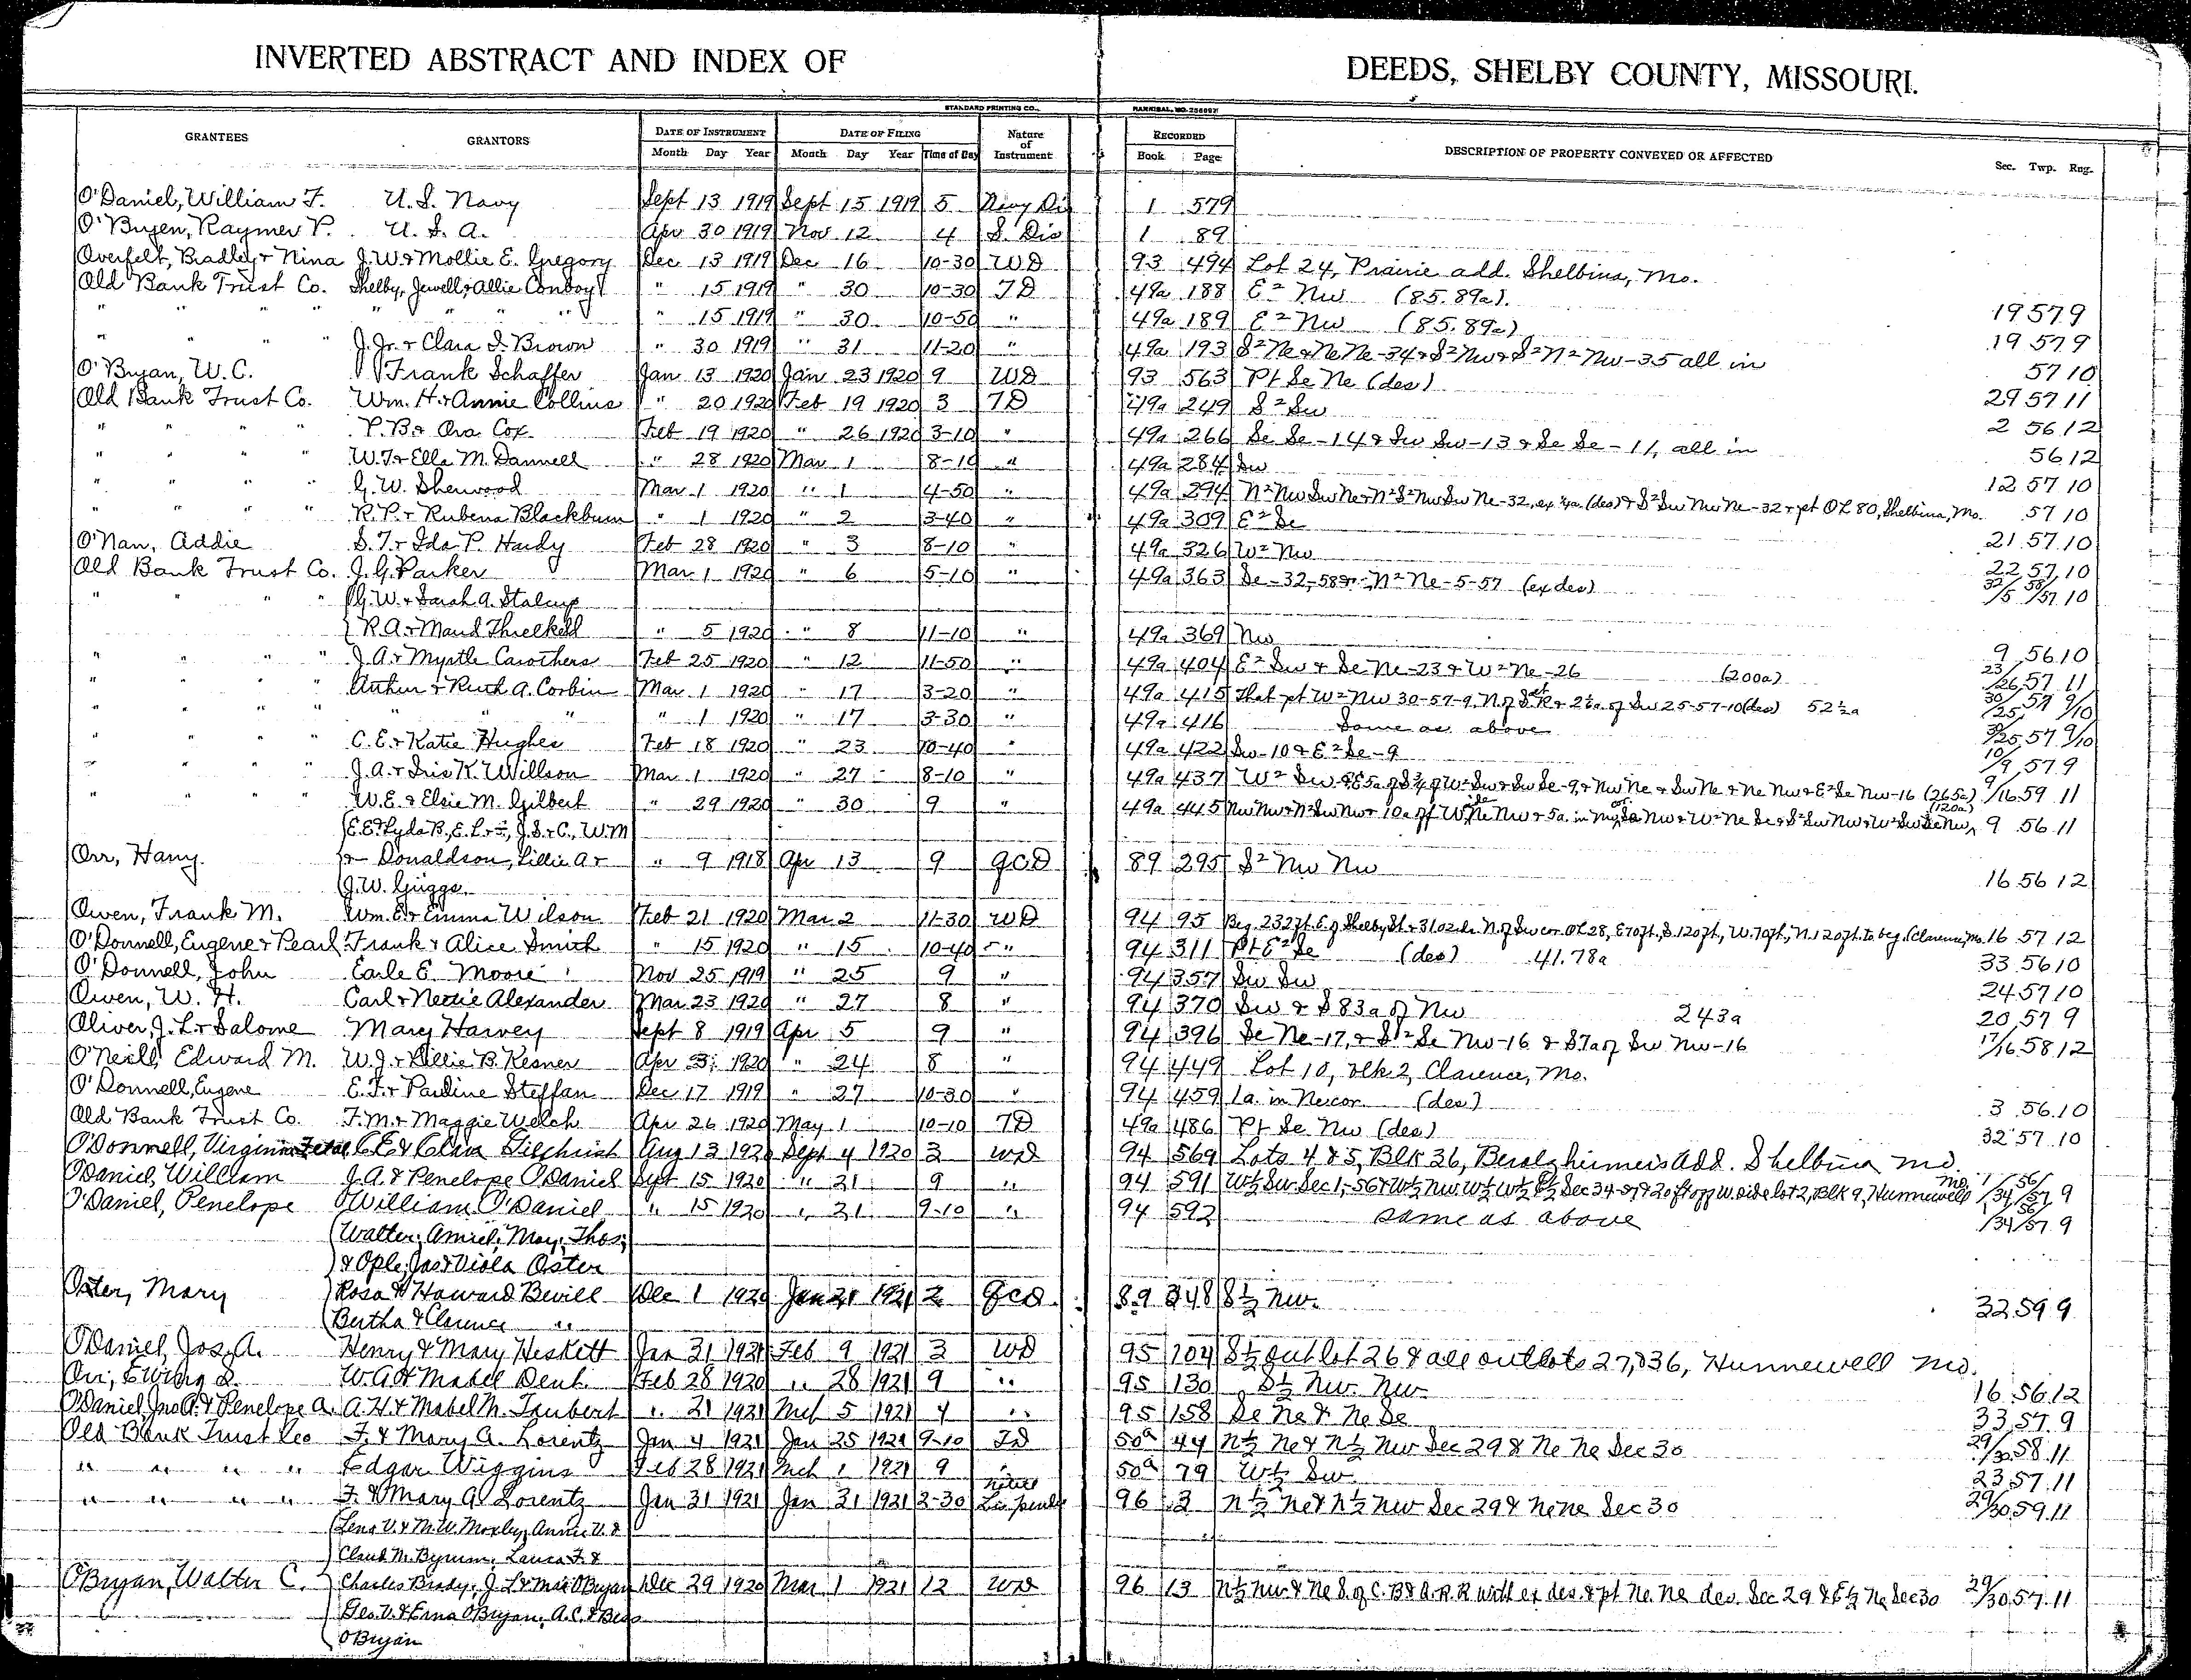 INVERTED ABSTRACT AND INDEX OF DEEDS, SHELBY COUNTY, MISSOURI.
STANDARD PRINTING CO., HANNIBAL, MO.
GRANTEES GRANTORS DATE OF INSTRUMENT DATE OF FILING Nature of Instrument RECORDED DESCRIPTION OF PROPERTY CONVEYED OR AFFECTED Sec. Twp. Rng.
Month Day Year Month Day Year Time of Day Book Page
O'Daniel, William F. U.S. Navy Sept 13 1919 Sept 15 1919 5 Navy Dis 1 579
O'Bryen, Raymer P. U.S.A. Apr 30 1919 Nov 12 4 S. Dis 1 89
Overfelt, Bradley & Nina J.W. & Mollie E. Gregory Dec 13 1919 Dec 16 10-30 WD 93 494 Lot 24, Prairie add. Shelbina, Mo.
Old Bank Trust Co. Shelby, Jewell & Allie Conboy " 15 1919 " 30 10-30 TD 49a 188 E² Nw (85.89a). 19 57 9
" " " " " " " " " 15 1919 " 30 10-50 " 49a 189 E² Nw (85.89a) 19 57 9
" " " " J. Jr. & Clara I. Brown " 30 1919 " 31 11-20 " 49a 193 S² Ne & Ne Ne-34 & S² Nw & S² N² Nw-35 all in 57 10
O'Bryan, W.C. Frank Schaffer Jan 13 1920 Jan 23 1920 9 WD 93 563 Pt Se Ne (des) 29 57 11
Old Bank Trust Co. Wm. H. & Annie Collins " 20 1920 Feb 19 1920 3 TD 49a 249 S² Sw 2 56 12
" " " " P.B. & Ora Cox Feb 19 1920 " 26 1920 3-10 " 49a 266 Se Se-14 & Sw Sw-13 & Se Se-11, all in 56 12
" " " " W.T. & Ella M. Dannell " 28 1920 Mar 1 8-10 " 49a 284 Sw 12 57 10
" " " " G.W. Sherwood Mar 1 1920 " 1 4-50 " 49a 294 N² Nw Sw Ne & N² S² Nw Sw Ne-32, ex ¼a (des) & S² Sw Nw Ne-32 & pt OL 80, Shelbina, Mo. 57 10
" " " " R.P. & Rubena Blackburn " 1 1920 " 2 3-40 " 49a 309 E² Se 21 57 10
O'Nan, Addie S.T. & Ida P. Hardy Feb 28 1920 " 3 8-10 " 49a 326 W² Nw 22 57 10
Old Bank Trust Co. J.G. Parker Mar 1 1920 " 6 5-10 " 49a 363 Se-32-58 & N² Ne-5-57 (ex des) 32/5 58/57 10
" " " " G.W. & Sarah A. Stalcup
R.A. & Maud Threlkeld " 5 1920 " 8 11-10 " 49a 369 Nw 9 56 10
" " " " J.A. & Myrtle Carothers Feb 25 1920 " 12 11-50 " 49a 404 E² Sw & Se Ne-23 & W² Ne-26 (200a) 23/26 57 11
" " " " Arthur & Ruth A. Corbin Mar 1 1920 " 17 3-20 " 49a 415 That pt W² Nw 30-57-9, N. of St R & 2½a of Sw 25-57-10 (des) 52½a 30/25 57 9/10
" " " " " " " " 1 1920 " 17 3-30 " 49a 416 Same as above 30/25 57 9/10
" " " " C.E. & Katie Hughes Feb 18 1920 " 23 10-40 " 49a 422 Sw-10 & E² Se-9 10/9 57 9
" " " " J.A. & Iris K. Willson Mar 1 1920 " 27 8-10 " 49a 437 W² Sw & E 5a of S¾ of W² Sw & Sw Se-9, & Nw Ne & Sw Ne & Ne Nw & E² Se Nw-16 (265a) 9/16 59 11
" " " " W.E. & Elsie M. Gilbert " 29 1920 " 30 9 " 49a 445 Nw Nw & N² Sw Nw & 10a off W side Ne Nw & 5a. in Nw cor Se Nw & W² Ne Se & S² Sw Nw & W² Sw Se Nw, (120a) 9 56 11
Orr, Harry. E.E. & Lyda B., E.L. & , J.S. & C., W.M.
& Donaldson, Lillie A & " 9 1918 Apr 13 9 QCD 89 295 S² Nw Nw 16 56 12
J.W. Griggs.
Owen, Frank M. Wm. E. & Emma Wilson Feb 21 1920 Mar 2 11-30 WD 94 95 Beg. 232 ft. E. of Shelby St & 31.02 ch. N. of Sw cor. OL 28, E 70 ft., S. 120 ft., W. 70 ft., N. 120 ft. to beg. (Clarence, Mo. 16 57 12
O'Donnell, Eugene & Pearl Frank & Alice Smith " 15 1920 " 15 10-40 " 94 311 Pt E² Se (des) 41.78a 33 56 10
O'Donnell, John Earle E. Moore Nov 25 1919 " 25 9 " 94 357 Sw Sw 24 57 10
Owen, W.H. Carl & Nettie Alexander Mar 23 1920 " 27 8 " 94 370 Sw & S 83a of Nw 243a 20 57 9
Oliver, J.L. & Salome Mary Harvey Sept 8 1919 Apr 5 9 " 94 396 Se Ne-17, & S² Se Nw-16 & S 7a of Sw Nw-16 17/16 58 12
O'Neill, Edward M. W.J. & Lillie B. Kesner Apr 3 1920 " 24 8 " 94 449 Lot 10, Blk 2, Clarence, Mo.
O'Donnell, Eugene E.F. & Pauline Steffan Dec 17 1919 " 27 10-30 " 94 459 1a. in Ne cor. (des) 3 56 10
Old Bank Trust Co. F.M. & Maggie Welch Apr 26 1920 May 1 10-10 TD 49a 486 Pt Se Nw (des) 32 57 10
O'Donnell, Virginia et al C.E. & Clara Gilchrist Aug 13 1920 Sept 4 1920 3 WD 94 569 Lots 4 & 5, Blk 36, Beralzhimers Add. Shelbina Mo.
O'Daniel, William J.A. & Penelope O'Daniel Sept 15 1920 " 21 9 " 94 591 W½ Sw Sec 1-56 & W½ Nw W½ W½ E½ Sec 34-57 & 20 ft off W. side lot 2, Blk 9, Hunnewell Mo. 1/34 56/57 9
O'Daniel, Penelope William O'Daniel " 15 1920 " 21 9-10 " 94 592 same as above 1/34 56/57 9
Walter, Amiel, May, Thos,
& Ople, Jas & Viola Oster
Oster, Mary Rosa & Howard Bevill Dec 1 1920 Jan 21 1921 2 QCD 89 348 S½ Nw. 32 59 9
Bertha & Clarence "
O'Daniel, Jos. A. Henry & Mary Heskett Jan 31 1921 Feb 9 1921 3 WD 95 104 S½ outlot 26 & all outlots 27, & 36, Hunnewell Mo.
Orr, Ewing S. W.A. & Mabel Dent Feb 28 1920 " 28 1921 9 " 95 130 S½ Nw. Nw. 16 56 12
O'Daniel, Jno A. & Penelope A. A.H. & Mabel M. Taubert " 21 1921 Mch 5 1921 4 " 95 158 Se Ne & Ne Se 33 57 9
Old Bank Trust Co F. & Mary A. Lorentz Jan 4 1921 Jan 25 1921 9-10 TD 50a 44 N½ Ne & N½ Nw Sec 29 & Ne Ne Sec 30 29/30 58 11
" " " " Edgar Wiggins Feb 28 1921 Mch 1 1921 9 " 50a 79 W½ Sw. 23 57 11
" " " " F. & Mary A. Lorentz Jan 31 1921 Jan 31 1921 2-30 Notice Lis pends 96 3 N½ Ne & N½ Nw Sec 29 & Ne Ne Sec 30 29/30 59 11
Lena V. & M.W. Moxley, Annie V. &
Claud M. Bynum, Laura F. &
O'Bryan, Walter C. Charles Brady, J.L. & Mae O'Bryan Dec 29 1920 Mar 1 1921 12 WD 96 13 N½ Nw & Ne S. of C.B & Q.R.R with ex des. & pt Ne. Ne des. Sec 29 & E½ Ne Sec 30 29/30 57 11
Geo. V. & Erna O'Bryan, A.C. & Bess
O'Bryan